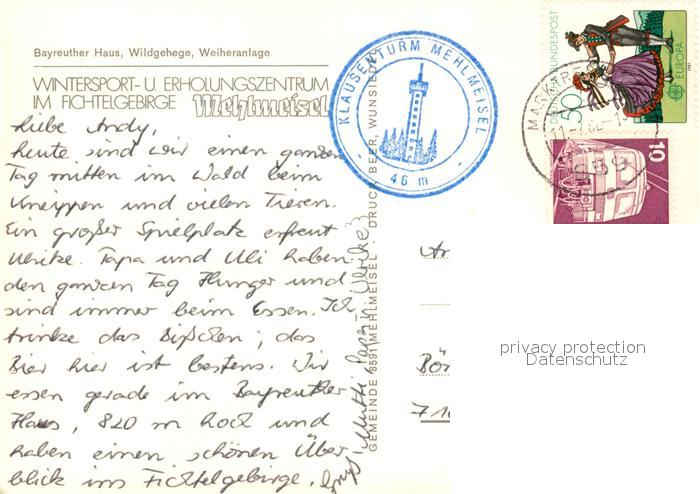 Bayreuther Haus, Wildgehege, Weiheranlage
WINTERSPORT- U. ERHOLUNGSZENTRUM
IM FICHTELGEBIRGE Mehlmeisel
Liebe Andy,
heute sind wir einen ganzen
Tag mitten im Wald beim
Kneippen und vielen Tieren.
Ein großer Spielplatz erfreut
Ulrike. Papa und Uli haben
den ganzen Tag Hunger und
sind immer beim Essen. Ich
trinke das Bißchen; das
Bier hier ist bestens. Wir
essen gerade im Bayreuther
Haus, 820 m hoch und
haben einen schönen Über
blick ins Fichtelgebirge.
Mutti Papi Ulrike
GEMEINDE 8591 MEHLMEISEL · DRUCK BEER, WUNSIEDEL
KLAUSENTURM MEHLMEISEL
- 46 m -
DEUTSCHE BUNDESPOST
50
EUROPA
1981
10
An
Bön
71
privacy protection
Datenschutz